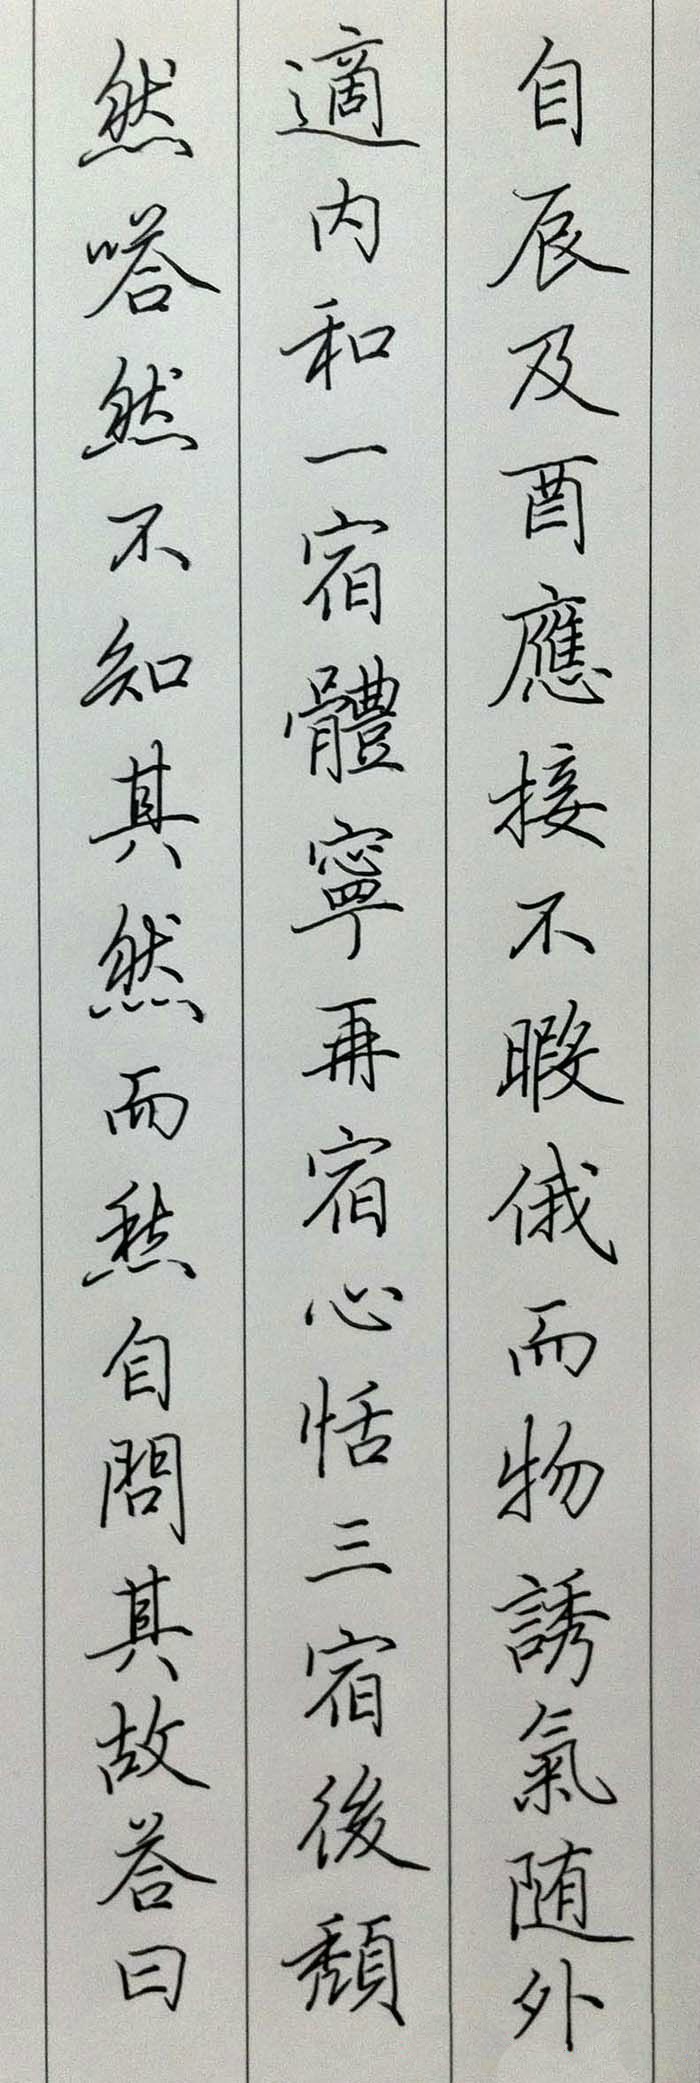 自辰及酉應接不暇俄而物誘氣随外
適内和一宿體寧再宿心恬三宿後頹
然嗒然不知其然而然自問其故荅曰